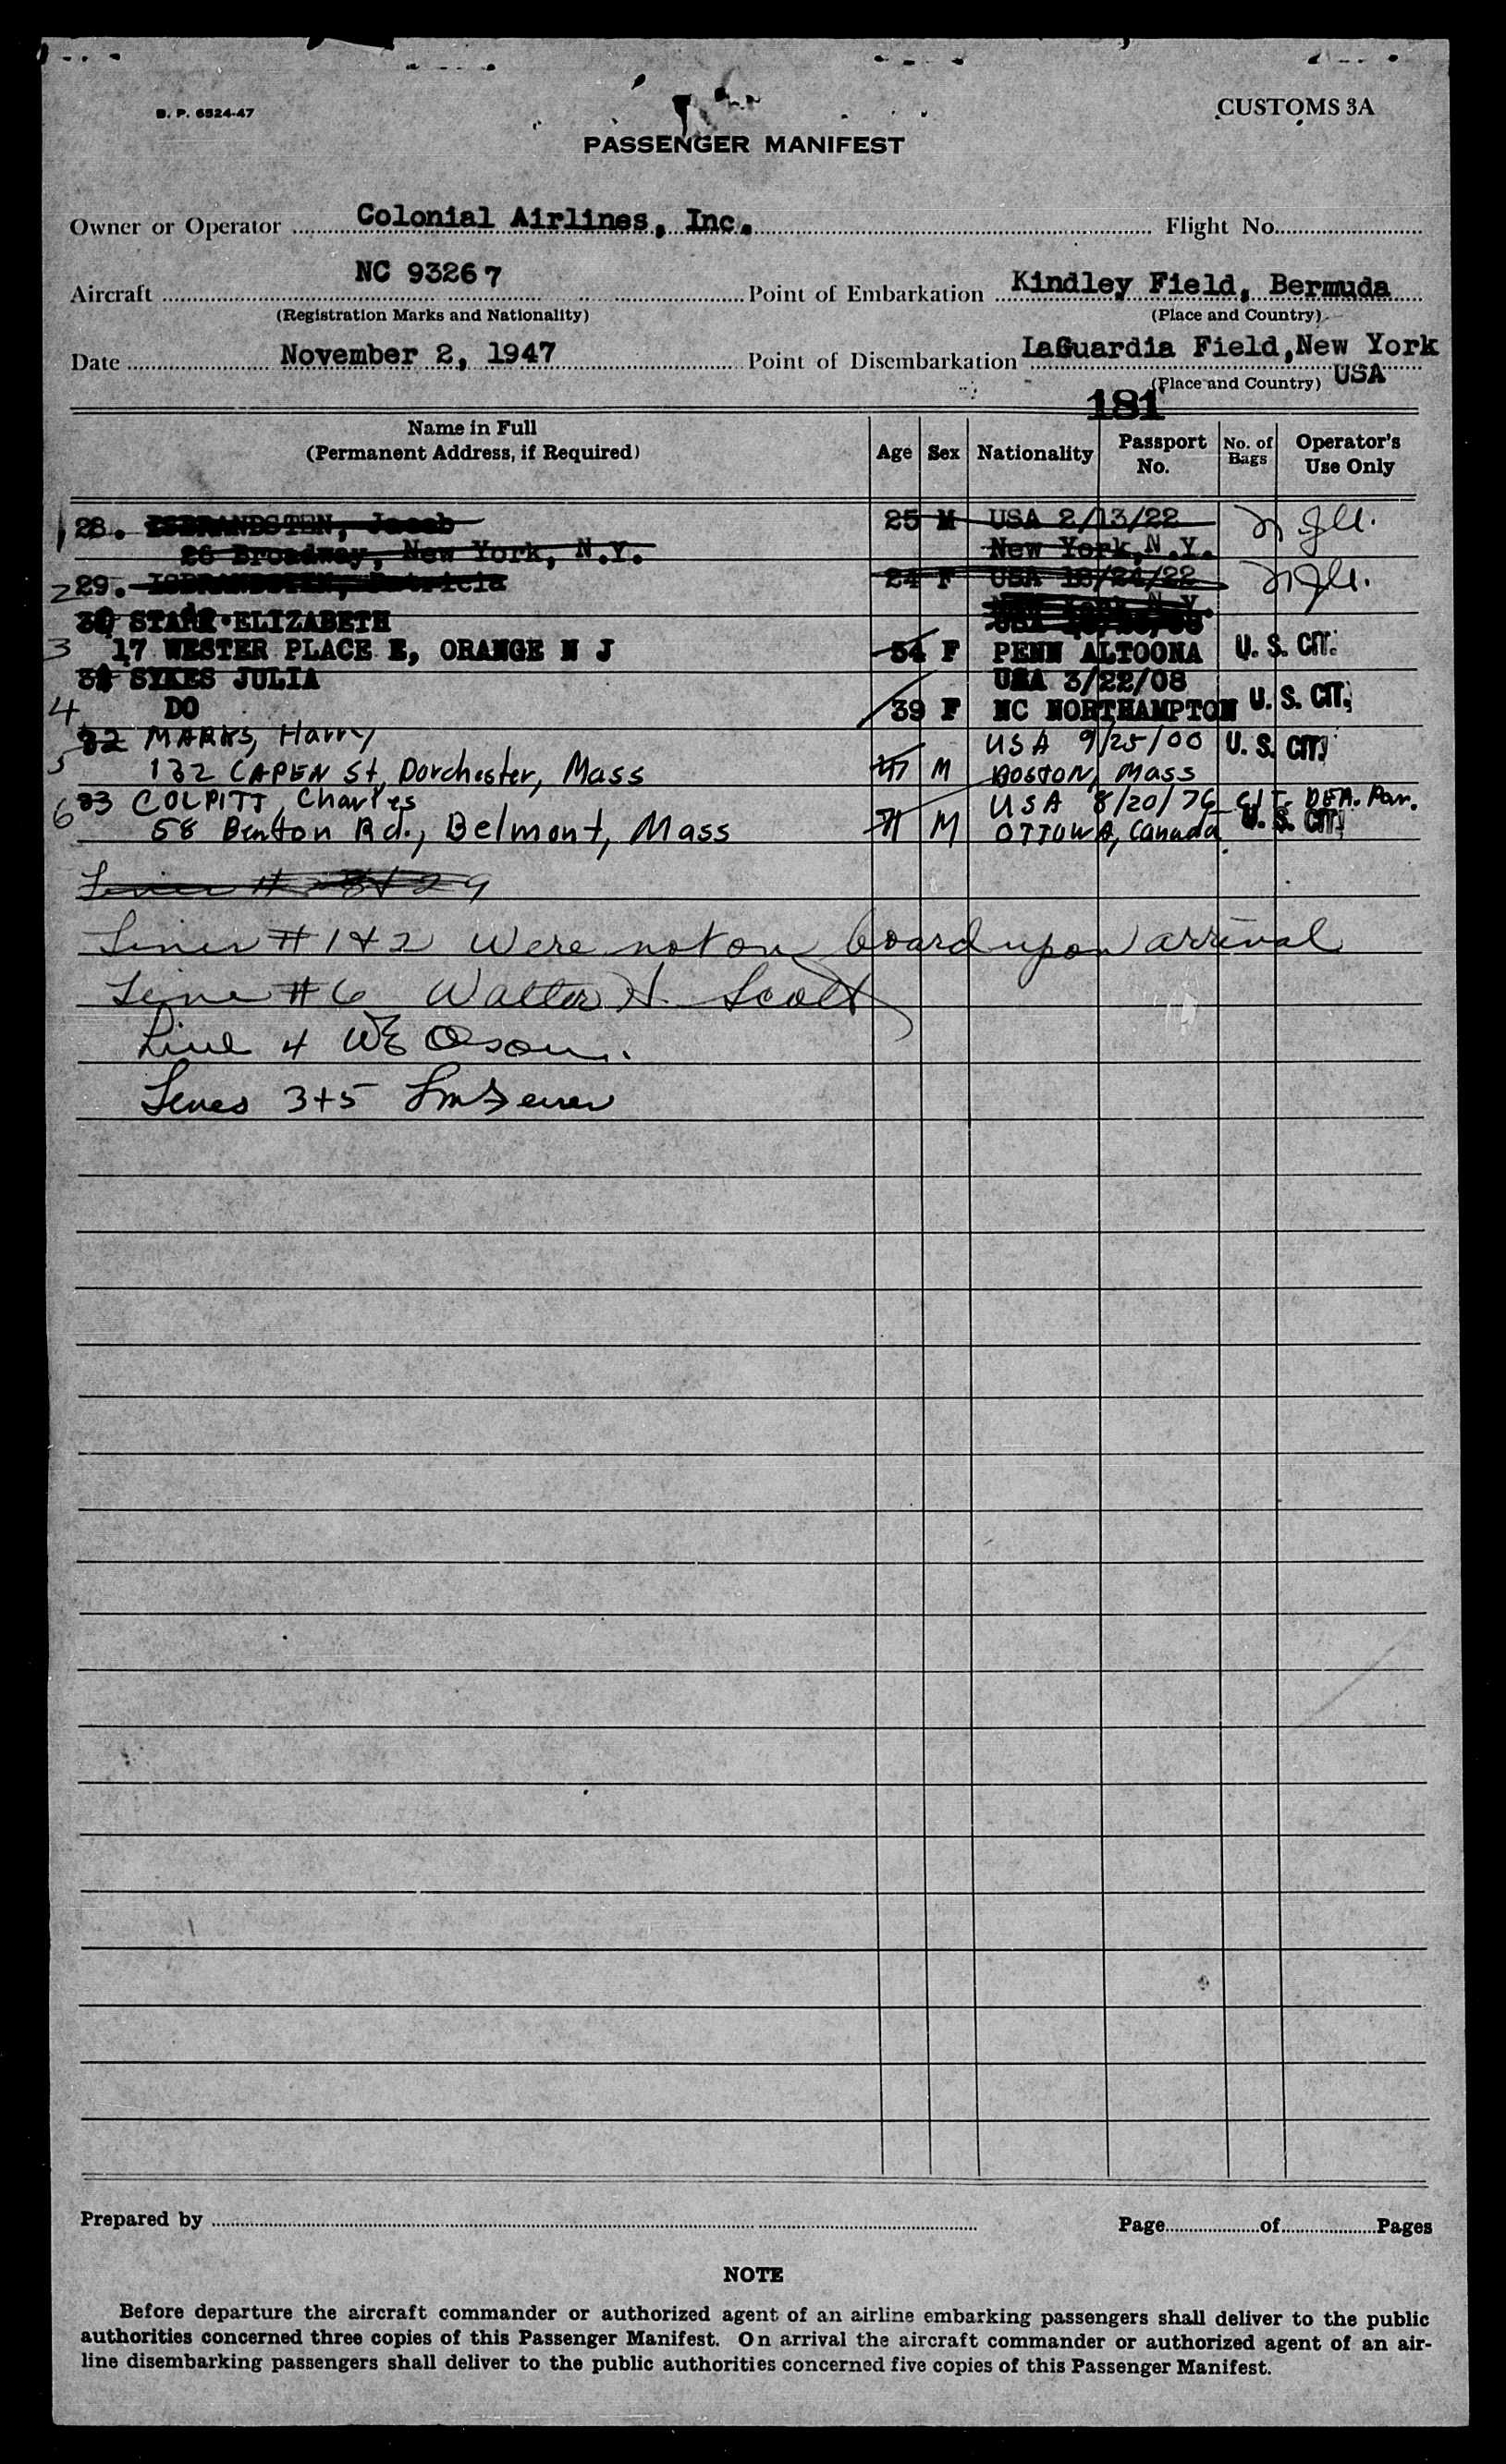 B. P. 6524-47
CUSTOMS 3A
PASSENGER MANIFEST
Owner or Operator Colonial Airlines, Inc. Flight No.
Aircraft NC 93267 Point of Embarkation Kindley Field, Bermuda
(Registration Marks and Nationality) (Place and Country)
Date November 2, 1947 Point of Disembarkation LaGuardia Field, New York
(Place and Country) USA
181
Name in Full
(Permanent Address, if Required)
Age Sex Nationality Passport No. No. of Bags Operator's Use Only
1 28. Jacob 25 M USA 2/13/22
26 Broadway, New York, N.Y. New York, N.Y.
2 29. Patricia 24 F USA
30 STARR ELIZABETH
3 17 WESTER PLACE E, ORANGE N J 54 F PENN ALTOONA U. S. CIT.
31 SYKES JULIA USA 3/22/08
4 DO 39 F NC NORTHAMPTON U. S. CIT.
32 MARKS, Harry USA 9/25/00 U. S. CIT.
5 132 CAPEN St, Dorchester, Mass 47 M BOSTON, Mass
6 33 COLPITT, Charles USA 8/20/76 CIT. Par.
58 Benton Rd., Belmont, Mass 71 M OTTOWA, Canada U. S. CIT.
Lines # 28 + 29
Lines # 1 & 2 were not on board upon arrival
Line # 6 Walter H. Scott
Line 4 WE
Lines 3+5
Prepared by Page of Pages
NOTE
Before departure the aircraft commander or authorized agent of an airline embarking passengers shall deliver to the public
authorities concerned three copies of this Passenger Manifest. On arrival the aircraft commander or authorized agent of an air-
line disembarking passengers shall deliver to the public authorities concerned five copies of this Passenger Manifest.